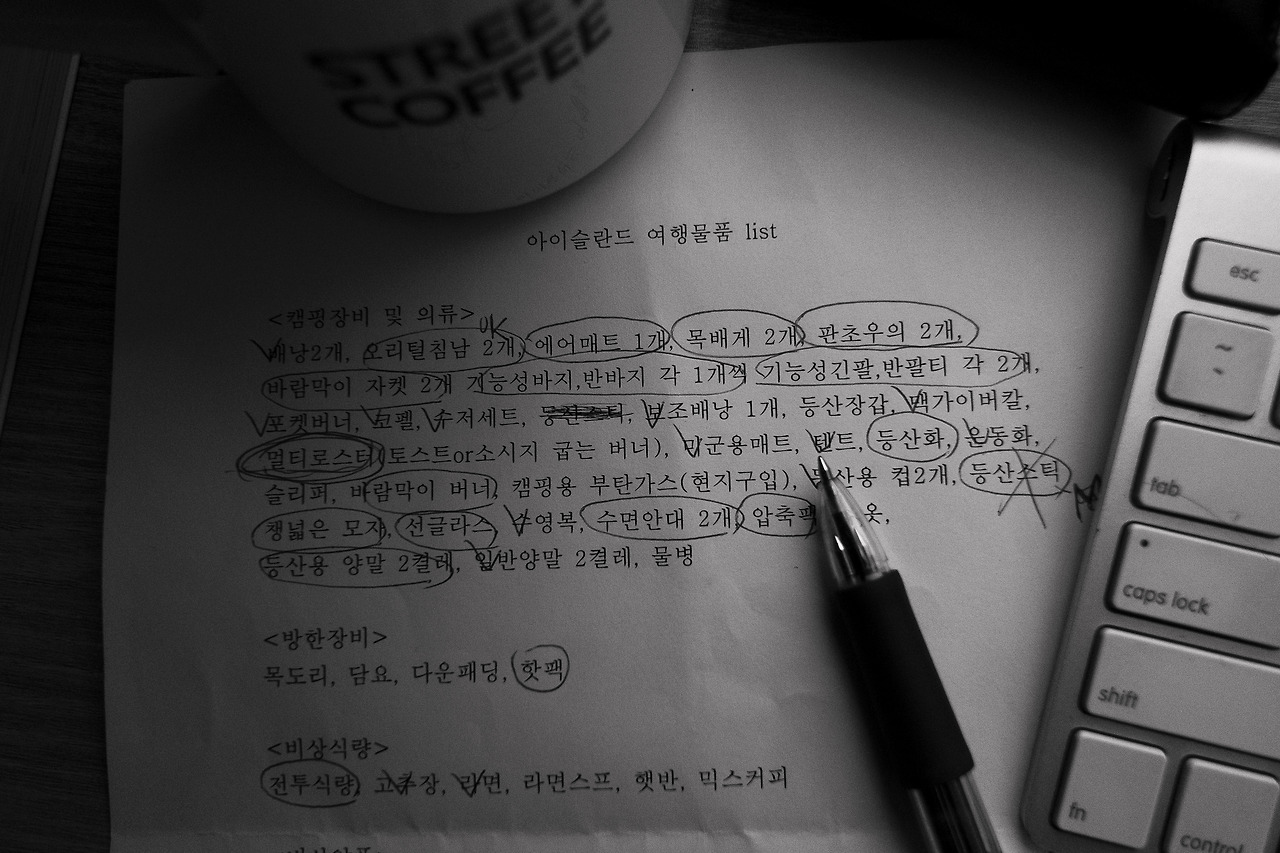 STREET
COFFEE
아이슬란드 여행물품 list
<캠핑장비 및 의류>
OK
배낭2개, 오리털침낭 2개, 에어매트 1개, 목배게 2개, 판초우의 2개,
바람막이 자켓 2개 기능성바지,반바지 각 1개씩 기능성긴팔,반팔티 각 2개,
포켓버너, 코펠, 수저세트, 등산스틱, 보조배낭 1개, 등산장갑, 맥가이버칼,
멀티로스터(토스트or소시지 굽는 버너), 미군용매트, 텐트, 등산화, 운동화,
슬리퍼, 바람막이 버너, 캠핑용 부탄가스(현지구입), 등산용 컵2개, 등산스틱
챙넓은 모자, 선글라스, 수영복, 수면안대 2개, 압축팩 옷,
등산용 양말 2켤레, 일반양말 2켤레, 물병
<방한장비>
목도리, 담요, 다운패딩, 핫팩
<비상식량>
전투식량, 고추장, 라면, 라면스프, 햇반, 믹스커피
esc
~
tab
caps lock
shift
fn
control